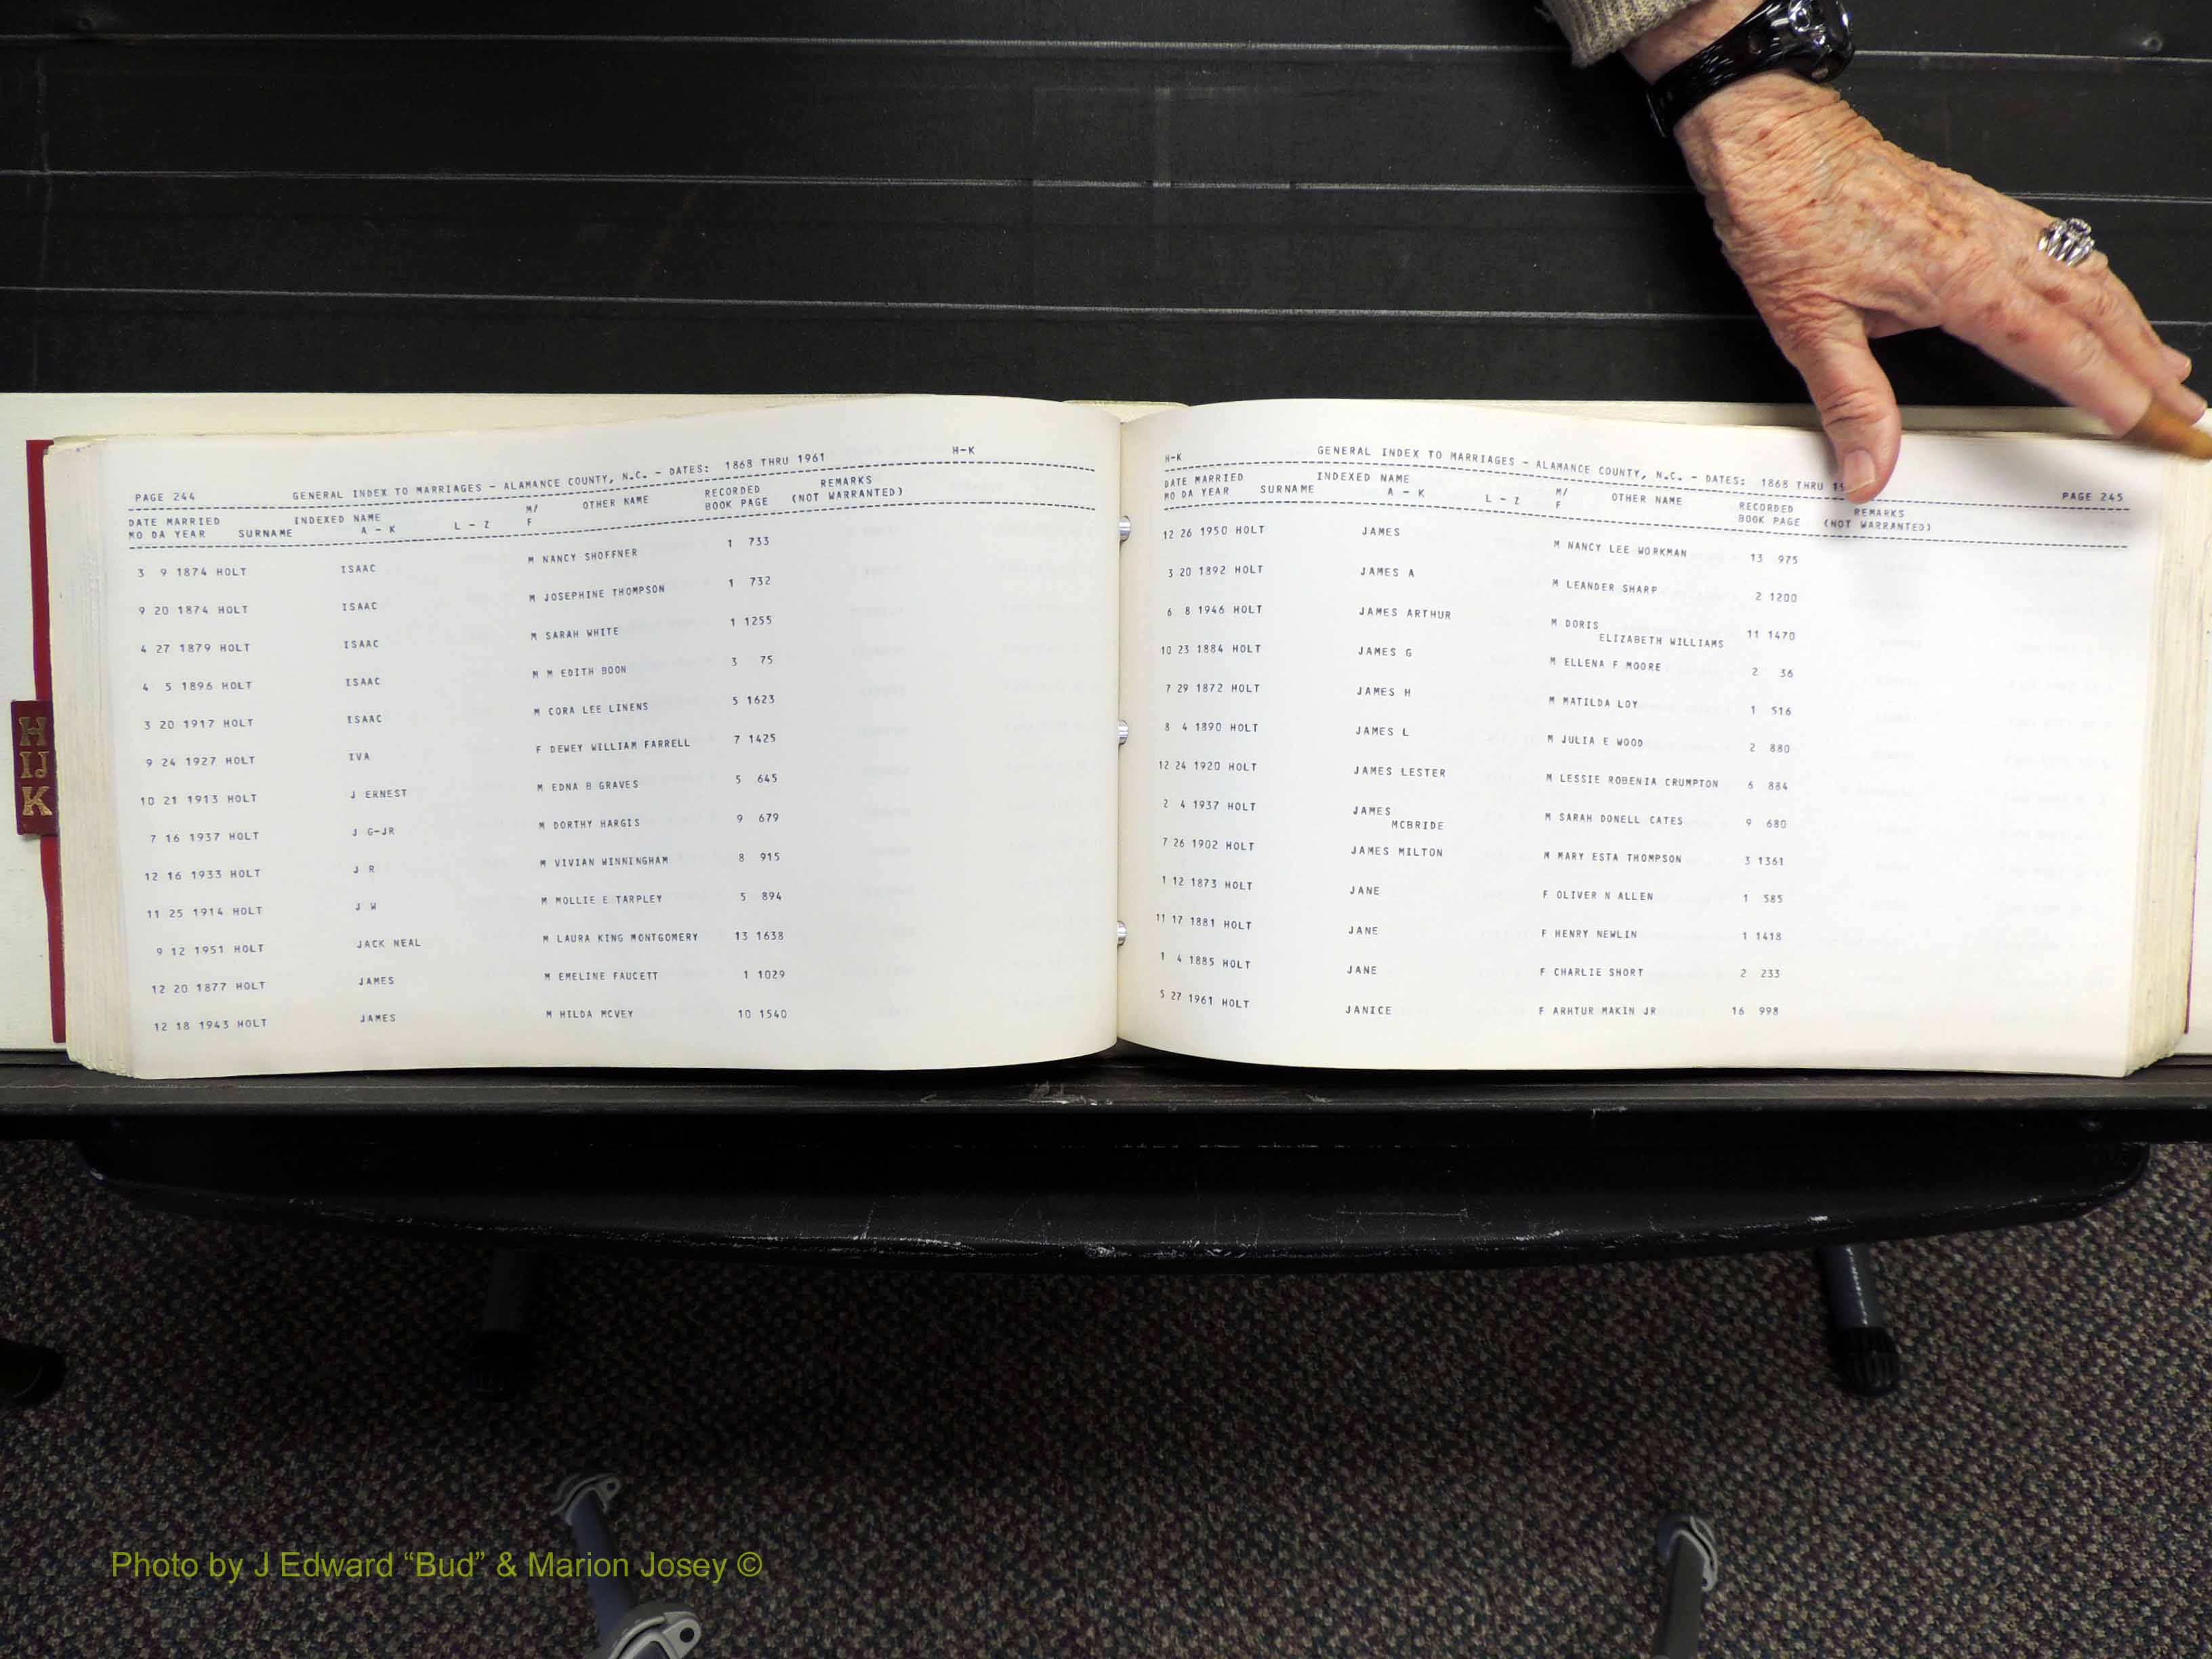 H
IJ
K
PAGE 244 GENERAL INDEX TO MARRIAGES - ALAMANCE COUNTY, N.C. - DATES: 1868 THRU 1961 H-K
DATE MARRIED INDEXED NAME M/ OTHER NAME RECORDED REMARKS
MO DA YEAR SURNAME A - K L - Z F BOOK PAGE (NOT WARRANTED)
3 9 1874 HOLT ISAAC M NANCY SHOFFNER 1 733
9 20 1874 HOLT ISAAC M JOSEPHINE THOMPSON 1 732
4 27 1879 HOLT ISAAC M SARAH WHITE 1 1255
4 5 1896 HOLT ISAAC M M EDITH BOON 3 75
3 20 1917 HOLT ISAAC M CORA LEE LINENS 5 1623
9 24 1927 HOLT IVA F DEWEY WILLIAM FARRELL 7 1425
10 21 1913 HOLT J ERNEST M EDNA B GRAVES 5 645
7 16 1937 HOLT J G-JR M DORTHY HARGIS 9 679
12 16 1933 HOLT J R M VIVIAN WINNINGHAM 8 915
11 25 1914 HOLT J W M MOLLIE E TARPLEY 5 894
9 12 1951 HOLT JACK NEAL M LAURA KING MONTGOMERY 13 1638
12 20 1877 HOLT JAMES M EMELINE FAUCETT 1 1029
12 18 1943 HOLT JAMES M HILDA MCVEY 10 1540
H-K GENERAL INDEX TO MARRIAGES - ALAMANCE COUNTY, N.C. - DATES: 1868 THRU 19 PAGE 245
DATE MARRIED INDEXED NAME M/ OTHER NAME RECORDED REMARKS
MO DA YEAR SURNAME A - K L - Z F BOOK PAGE (NOT WARRANTED)
12 26 1950 HOLT JAMES M NANCY LEE WORKMAN 13 975
3 20 1892 HOLT JAMES A M LEANDER SHARP 2 1200
6 8 1946 HOLT JAMES ARTHUR M DORIS 11 1470
ELIZABETH WILLIAMS
10 23 1884 HOLT JAMES G M ELLENA F MOORE 2 36
7 29 1872 HOLT JAMES H M MATILDA LOY 1 516
8 4 1890 HOLT JAMES L M JULIA E WOOD 2 880
12 24 1920 HOLT JAMES LESTER M LESSIE ROBENIA CRUMPTON 6 884
2 4 1937 HOLT JAMES M SARAH DONELL CATES 9 680
MCBRIDE
7 26 1902 HOLT JAMES MILTON M MARY ESTA THOMPSON 3 1361
1 12 1873 HOLT JANE F OLIVER N ALLEN 1 585
11 17 1881 HOLT JANE F HENRY NEWLIN 1 1418
1 4 1885 HOLT JANE F CHARLIE SHORT 2 233
5 27 1961 HOLT JANICE F ARHTUR MAKIN JR 16 998
Photo by J Edward “Bud” & Marion Josey ©